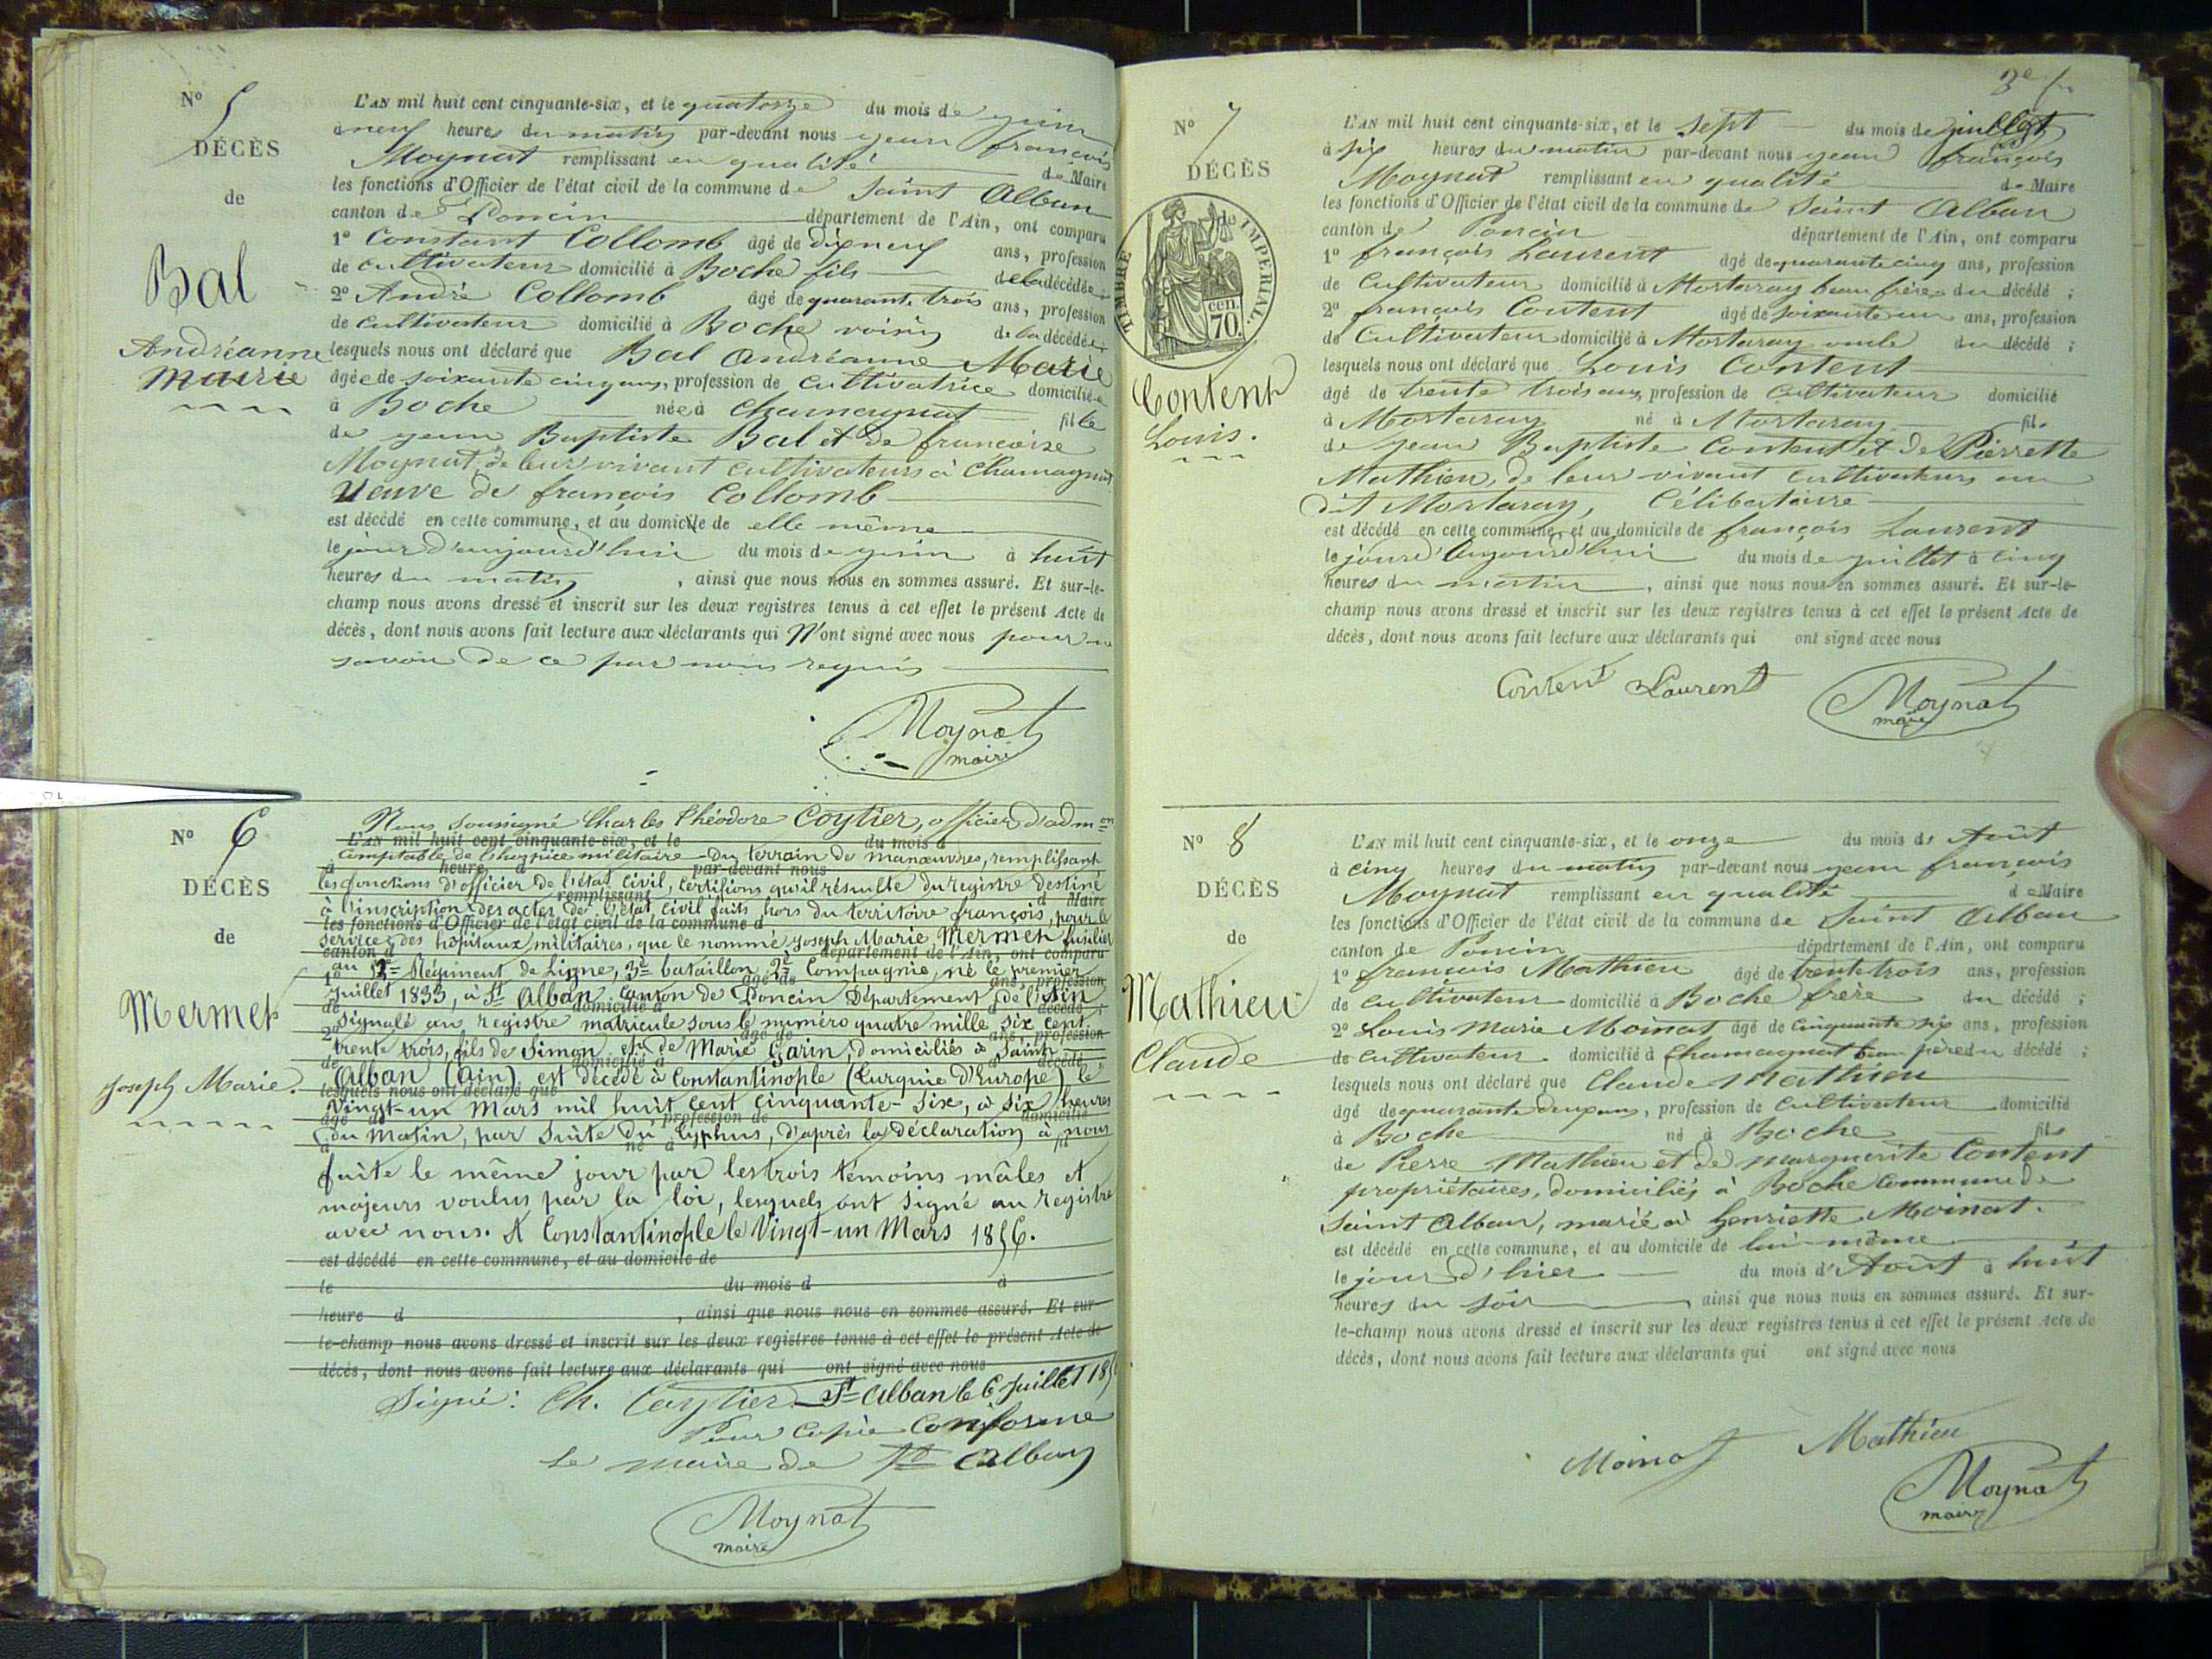 N° 5
DÉCÈS
de
Bal
Andréanne
Marie
L'AN mil huit cent cinquante-six, et le quatorze du mois de juin
à neuf heures du matin par-devant nous jean françois
Moynat remplissant en qualité de Maire
les fonctions d'Officier de l'état civil de la commune de Saint Alban
canton de Poncin département de l'Ain, ont comparu
1° Constant Collomb âgé de dixneuf ans, profession
de cultivateur domicilié à Boche fils de la décédée
2° André Collomb âgé de quarante trois ans, profession
de cultivateur domicilié à Boche voisin de la décédée
lesquels nous ont déclaré que Bal Andréanne Marie
âgée de soixante cinq ans, profession de cultivatrice domiciliée
à Boche née à Chamagnat fille
de jean Baptiste Bal et de francoise
Moynat, de leur vivant cultivateurs à Chamagnat
Veuve de françois Collomb
est décédé en cette commune, et au domicile de elle même
le jour d'aujourd'hui du mois de juin à huit
heures du matin, ainsi que nous nous en sommes assuré. Et sur-le-
champ nous avons dressé et inscrit sur les deux registres tenus à cet effet le présent Acte de
décès, dont nous avons fait lecture aux déclarants qui N'ont signé avec nous pour ne
savoir de ce par nous requis
Moynat
maire
N° 6
DÉCÈS
de
Mermet
Joseph Marie.
Nous soussigné Charles Théodore Coytier, officier d'adm^on
L'AN mil huit cent cinquante-six, et le du mois d
comptable de l'hospice militaire du terrain de manœuvres, remplissant
à heure d par-devant nous
les fonctions d'officier de l'état civil, certifions qu'il résulte du registre destiné
remplissant d Maire
à l'inscription des actes de l'état civil faits hors du territoire françois, pour le
les fonctions d'Officier de l'état civil de la commune d
service des hôpitaux militaires, que le nommé joseph Marie Mermet fusilier
canton d département de l'Ain, ont comparu
au Régiment de Ligne, 3e bataillon 2e Compagnie, né le premier
1° âgé de ans, profession
juillet 1833, à St Alban, canton de Poncin Département de l'Ain
de domicilié à d décédé ;
signalé au registre matricule sous le numéro quatre mille six cent
2° âgé de ans, profession
trente trois, fils de Simon et de Marie Garin, domiciliés à Saint
de domicilié à d décédé
Alban (Ain) est décédé à Constantinople (Turquie d'Europe) le
lesquels nous ont déclaré que
Vingt-un Mars mil huit cent cinquante-six, à six heures
âgé de profession de domicilié
du Matin, par suite du typhus, d'après la déclaration à nous
à né à fil
faite le même jour par les trois témoins mâles et
majeurs voulus par la loi, lesquels ont signé au registre
avec nous. A Constantinople le Vingt-un Mars 1856.
est décédé en cette commune, et au domicile de
le du mois d à
heure d , ainsi que nous nous en sommes assuré. Et sur
le-champ nous avons dressé et inscrit sur les deux registres tenus à cet effet le présent Acte de
décès, dont nous avons fait lecture aux déclarants qui ont signé avec nous
Signé : Ch. Coytier. St Alban le 6 juillet 185
Pour copie Conforme
Le maire de St Alban
Moynat
maire
N° 7
DÉCÈS
de
TIMBRE IMPERIAL.
cen.
70.
Content
Louis.
L'AN mil huit cent cinquante-six, et le sept du mois de juillet
à six heures du matin par-devant nous jean françois
Moynat remplissant en qualité de Maire
les fonctions d'Officier de l'état civil de la commune de Saint Alban
canton de Poncin département de l'Ain, ont comparu
1° françois Laurent âgé de quarante cinq ans, profession
de Cultivateur domicilié à Mortaray beau frère du décédé ;
2° françois Content âgé de soixante un ans, profession
de Cultivateur domicilié à Mortaray oncle du décédé ;
lesquels nous ont déclaré que Louis Content
âgé de trente trois ans, profession de cultivateur domicilié
à Mortaray né à Mortaray fils
de jean Baptiste Content et de Pierrette
Mathieu, de leur vivant cultivateurs au
dit Mortaray, Célibataire
est décédé en cette commune, et au domicile de françois Laurent
le jour d'aujourd'hui du mois de juillet à cinq
heures du matin, ainsi que nous nous en sommes assuré. Et sur-le-
champ nous avons dressé et inscrit sur les deux registres tenus à cet effet le présent Acte de
décès, dont nous avons fait lecture aux déclarants qui ont signé avec nous
Content Laurent Moynat
maire
N° 8
DÉCÈS
de
Mathieu
Claude
L'AN mil huit cent cinquante-six, et le onze du mois d' Août
à cinq heures du matin par-devant nous jean françois
Moynat remplissant en qualité de Maire
les fonctions d'Officier de l'état civil de la commune de Saint Alban
canton de Poncin département de l'Ain, ont comparu
1° francois Mathieu âgé de trente trois ans, profession
de cultivateur domicilié à Boche frère du décédé ;
2° Louis Marie Moinat âgé de cinquante six ans, profession
de cultivateur domicilié à Chamagnat beau père du décédé ;
lesquels nous ont déclaré que Claude Mathieu
âgé de quarante deux ans, profession de cultivateur domicilié
à Boche né à Boche fils
de Pierre Mathieu et de marguerite Content
propriétaires, domiciliés à Boche commune de
Saint Alban, marié à henriette Moinat.
est décédé en cette commune, et au domicile de lui-même
le jour d'hier du mois d'Août à huit
heures du soir, ainsi que nous nous en sommes assuré. Et sur-
le-champ nous avons dressé et inscrit sur les deux registres tenus à cet effet le présent Acte de
décès, dont nous avons fait lecture aux déclarants qui ont signé avec nous
Moinat Mathieu
Moynat
maire